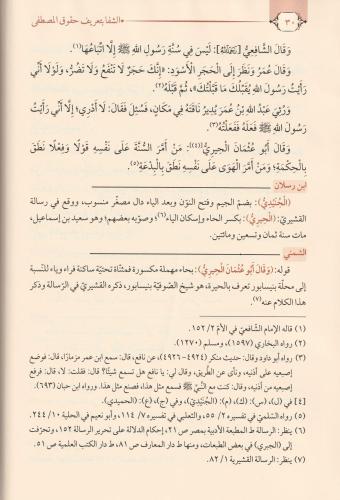 ٣٠
«الشفا بتعريف حقوق المصطفى
وَقَالَ الشَّافِعِيُّ [رَحِمَهُ اللهُ]: لَيْسَ فِي سُنَّةِ رَسُولِ اللهِ ﷺ إِلَّا اتِّبَاعُهَا(١).
وَقَالَ عُمَرُ وَنَظَرَ إِلَى الْحَجَرِ الْأَسْوَدِ: «إِنَّكَ حَجَرٌ لَا تَنْفَعُ وَلَا تَضُرُّ، وَلَوْلَا أَنِّي
رَأَيْتُ رَسُولَ اللهِ يُقَبِّلُكَ مَا قَبَّلْتُكَ»، ثُمَّ قَبَّلَهُ(٢).
وَرُئِيَ عَبْدُ اللهِ بْنُ عُمَرَ يُدِيرُ نَاقَتَهُ فِي مَكَانٍ، فَسُئِلَ فَقَالَ: لَا أَدْرِي؛ إِلَّا أَنِّي رَأَيْتُ
رَسُولَ اللهِ ﷺ فَعَلَهُ فَفَعَلْتُهُ(٣).
وَقَالَ أَبُو عُثْمَانَ الْحِيرِيُّ[٤]: مَنْ أَمَّرَ السُّنَّةَ عَلَى نَفْسِهِ قَوْلًا وَفِعْلًا نَطَقَ
بِالْحِكْمَةِ؛ وَمَنْ أَمَّرَ الْهَوَى عَلَى نَفْسِهِ نَطَقَ بِالْبِدْعَةِ(٥).
ابن رسلان
(الْجُنَيْدِيُّ): بضم الجيم وفتح النون وبعد الياء دال مصغّر منسوب، ووقع في رسالة
القشيري: (الْحِيرِيُّ): بكسر الحاء وإسكان الياء(٦)؛ وصوبه بعضهم؛ وهو سعيد بن إسماعيل،
مات سنة ثمان وتسعين ومائتين.
الشمني
قوله: (وَقَالَ أَبُو عُثْمَانَ الْحِيرِيُّ): بحاء مهملة مكسورة فمثنّاة تحتيّة ساكنة فراء وياء للنّسبة
إلى محلّة بنيسابور تعرف بالحيرة، هو شيخ الصّوفيّة بنيسابور، ذكره القشيري في الرّسالة وذكر
هذا الكلام عنه(٧).
(١) قاله الإمام الشافعي في الأم ٢/ ١٥٢.
(٢) رواه البخاري (١٥٩٧)، ومسلم (١٢٧٠).
(٣) رواه أبو داود وقال: حديث منكر (٤٩٢٤-٤٩٢٦)، عن نافع، قال: سمع ابن عمر مزمارًا، قال: فوضع
إصبعيه على أذنيه، ونأى عن الطّريق، وقال لي: يا نافع هل تسمع شيئًا؟ قال: فقلت: لا، قال: فرفع
إصبعيه من أذنيه، وقال: كنت مع النّبيّ ﷺ فسمع مثل هذا، فصنع مثل هذا. ورواه ابن حبان (٦٩٣).
[٤] في (ل)، (س): (ك)، (م): (الْجُنَيْدِيُّ)، وفي (ج)، (ع): (الحميدي).
(٥) رواه السّلمي في تفسيره ٢/ ٥٥، والثعلبي في تفسيره ٧/ ١١٤، وأبو نعيم في الحلية ١٠/ ٢٤٤.
(٦) ينظر: الرسالة ط المطبعة الأدبية بمصر ص ٢١، إحكام الدلالة على تحرير الرسالة ١٥٢، وتحرّفت
إلى (الجبري) في بعض الطبعات، ومنها ط دار المعارف ص ٨١، ط دار الكتب العلمية ص ٥١.
(٧) ينظر: الرسالة القشيرية ١/ ٨٢.